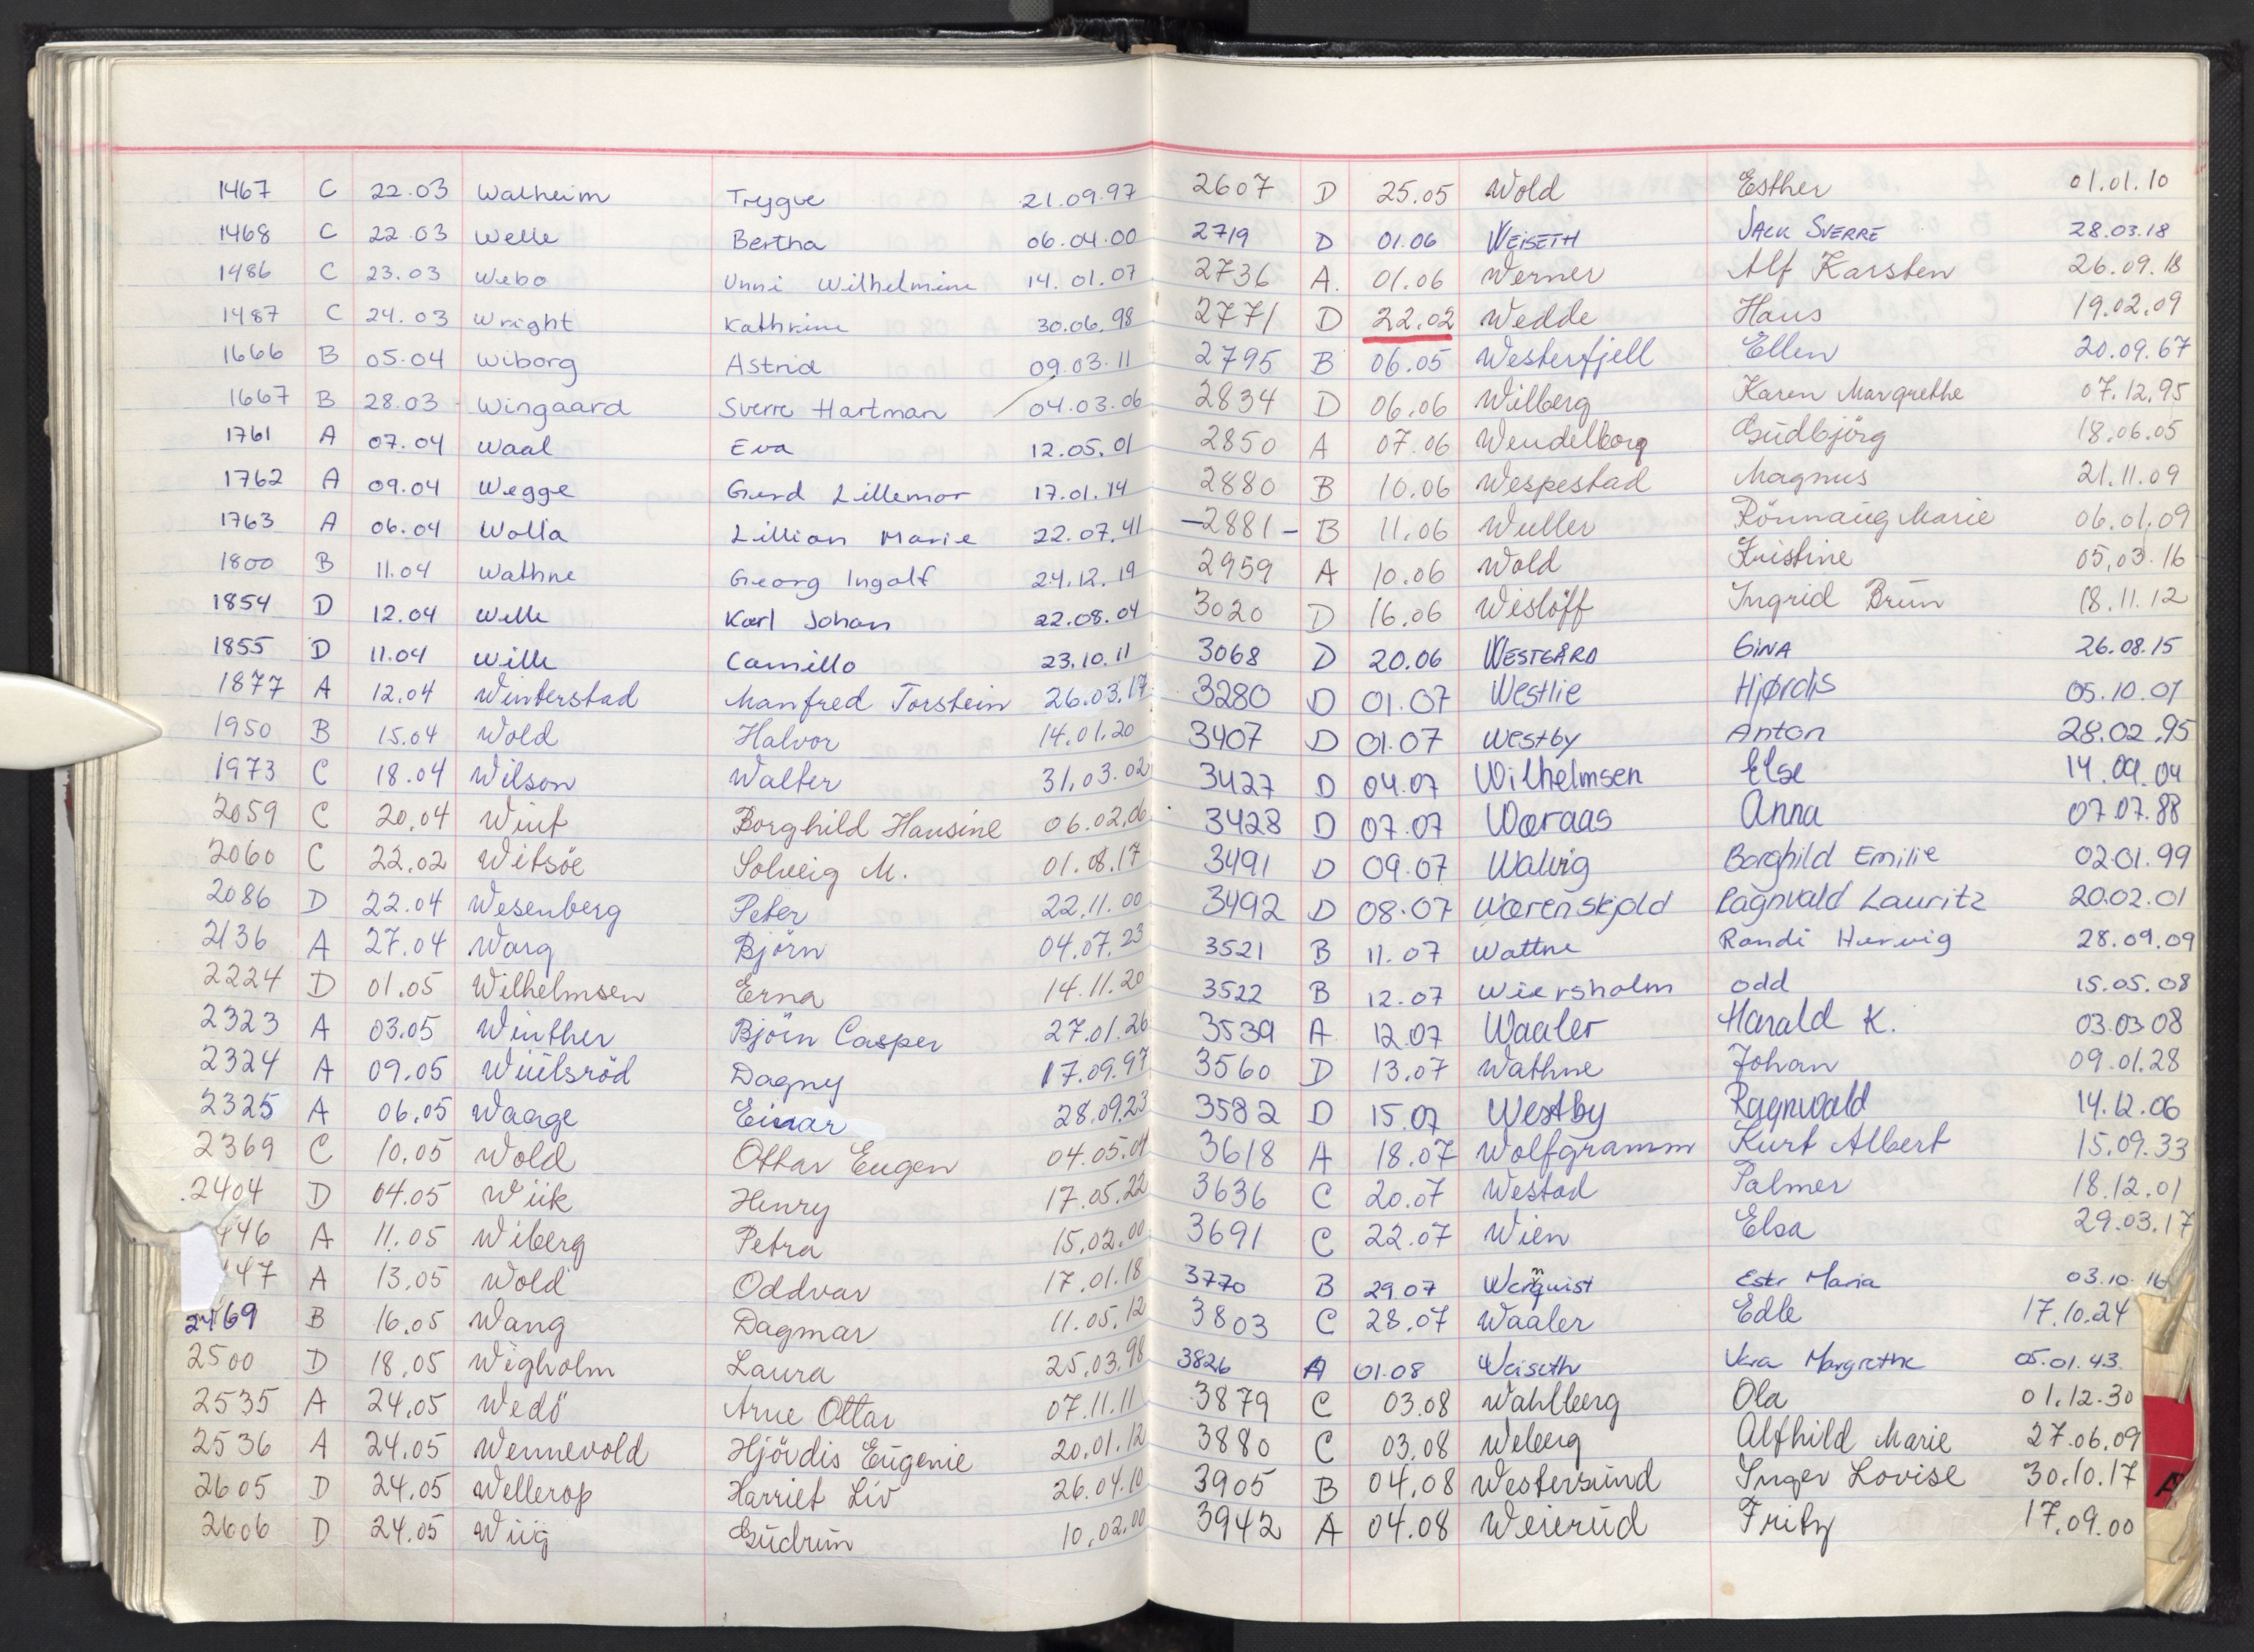 1467 C 22.03 Walheim Trygve 21.09.97
1468 C 22.03 Welle Bertha 06.04.00
1486 C 23.03 Webo Unni Wilhelmine 14.01.07
1487 C 24.03 Wright Kathrine 30.06.98
1666 B 05.04 Wiborg Astrid 09.03.11
1667 B 28.03 Wingaard Sverre Hartman 04.03.06
1761 A 07.04 Waal Eva 12.05.01
1762 A 09.04 Wegge Gerd Lillemor 17.01.14
1763 A 06.04 Walla Lillian Marie 22.07.41
1800 B 11.04 Wathne Georg Ingolf 24.12.19
1854 D 12.04 Wille Karl Johan 22.08.04
1855 D 11.04 Wille Camillo 23.10.11
1877 A 12.04 Winterstad Manfred Torstein 26.03.17
1950 B 15.04 Wold Halvor 14.01.20
1973 C 18.04 Wilson Walter 31.03.02
2059 C 20.04 Wint Borghild Hansine 06.02.06
2060 C 22.02 Witsöe Solveig M. 01.08.17
2086 D 22.04 Wesenberg Peter 22.11.00
2136 A 27.04 Warg Björn 04.07.23
2224 D 01.05 Wilhelmsen Erna 14.11.20
2323 A 03.05 Winther Björn Casper 27.01.26
2324 A 09.05 Wülsröd Dagny 17.09.97
2325 A 06.05 Waage Einar 28.09.23
2369 C 10.05 Wold Ottar Eugen 04.05.04
2404 D 04.05 Wiik Henry 17.05.22
446 A 11.05 Wiberg Petra 15.02.00
47 A 13.05 Wold Oddvar 17.01.18
2469 B 16.05 Wang Dagmar 11.05.12
2500 D 18.05 Wigholm Laura 25.03.98
2535 A 24.05 Wedö Arne Ottar 07.11.11
2536 A 24.05 Wennevold Hjördis Eugenie 20.01.12
2605 D 24.05 Wellerop Harriet Liv 26.04.10
2606 D 24.05 Wiig Gudrun 10.02.00
2607 D 25.05 Wold Esther 01.01.10
2719 D 01.06 WEISETH JACK SVERRE 28.03.18
2736 A. 01.06 Werner Alf Karsten 26.09.18
2771 D 22.02 Wedde Hans 19.02.09
2795 B 06.05 Westerfjell Ellen 20.09.67
2834 D 06.06 Wilberg Karen Margrethe 07.12.95
2850 A 07.06 Wendelborg Gudbjörg 18.06.05
2880 B 10.06 Wespestad Magnus 21.11.09
-2881- B 11.06 Wuller Rönnaug Marie 06.01.09
2959 A 10.06 Wold Kristine 05.03.16
3020 D 16.06 Wislöff Ingrid Brun 18.11.12
3068 D 20.06 WESTGÅRD GINA 26.08.15
3280 D 01.07 Westlie Hjørdis 05.10.07
3407 D 01.07 Westby Anton 28.02.95
3427 D 04.07 Wilhelmsen Else 14.09.04
3428 D 07.07 Wæraas Anna 07.07.88
3491 D 09.07 Walvig Borghild Emilie 02.01.99
3492 D 08.07 Wærenskjold Ragnvald Lauritz 20.02.01
3521 B 11.07 Wattne Randi Hervig 28.09.09
3522 B 12.07 Wiersholm Odd 15.05.08
3539 A 12.07 Waaler Harald K. 03.03.08
3560 D 13.07 Wathne Johan 09.01.28
3582 D 15.07 Westby Ragnvald 14.12.06
3618 A 18.07 Wolfgramm Kurt Albert 15.09.33
3636 C 20.07 Westad Palmer 18.12.01
3691 C 22.07 Wien Elsa 29.03.17
3770 B 29.07 Wenquist Ester Maria 03.10.16
3803 C 28.07 Waaler Edle 17.10.24
3826 A 01.08 Weiseth Vera Margrethe 05.01.43
3879 C 03.08 Wahlberg Ola 01.12.30
3880 C 03.08 Weberg Alfhild Marie 27.06.09
3905 B 04.08 Westersund Inger Lovise 30.10.17
3942 A 04.08 Weierud Fritz 17.09.00